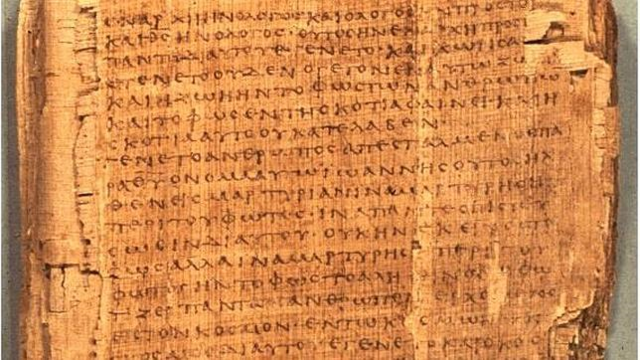 ΕΝΑΡΧΗΗΝΟΛΟΓΟϹΚΑΙΟΛΟΓΟϹ
ΚΑΙΘϹΗΝΟΛΟΓΟϹ·ΟΥΤΟϹΗΝΕΝΑΡΧΗΠΡΟϹ
ΠΑΝΤΑΔΙΑΥΤΟΥΕΓΕΝΕΤΟ·ΚΑΙΧΩΡΙϹΑΥ
ΤΟΥΕΓΕΝΕΤΟΟΥΔΕΝΟΓΕΓΟΝΕΝ
ΚΑΙΗΖΩΗΗΝΤΟΦΩϹΤΩΝΑΝΘΡΩΠΩ
ΚΑΙΤΟΦΩϹΕΝΤΗϹΚΟΤΙΑΦΑΙΝΕΙΚΑΙΗ
ϹΚΟΤΙΑΑΥΤΟΟΥΚΑΤΕΛΑΒΕΝ·
ΕΓΕΝΕΤΟΑΝΘΡΩΠΟϹΑΠΕϹΤΑΛΜΕΝΟϹΠΑ
ΡΑΘΥΟΝΟΜΑΑΥΤΩΙΩΑΝΝΗϹΟΥΤΟϹΗΛ
ΘΕΝΕΙϹΜΑΡΤΥΡΙΑΝΙΝΑΜΑΡΤΥΡΗϹΗ
ΠΕΡΙΤΟΥΦΩΤΟϹ·ΙΝΑΠΑΝΤΕϹΠΙϹΤΕΥ
ϹΩϹΙΝΔΙΑΥΤΟΥ·ΟΥΚΗΝΕΚΕΙΝΟϹΤΟ
ΦΩϹΑΛΛΑΙΝΑΜΑΡΤΥΡΗϹΗΠΕΡΙΤΟΥ
ΦΩΤΟϹΗΝΤΟΦΩϹΤΟΑΛΗΘΙΝΟΝΟΦΩ
ΤΙΖΕΙΠΑΝΤΑΑΝΘΡΩΠΟΝΕΡΧΟΜΕΝΟΝ
ΕΙϹΤΟΝΚΟϹΜΟΝ·ΕΝΤΩΚΟϹΜΩΗΝΚΑΙ
ΟΚΟϹΜΟϹΔΙΑΥΤΟΥΕΓΕΝΕΤΟΚΑΙΟΚΟϹ